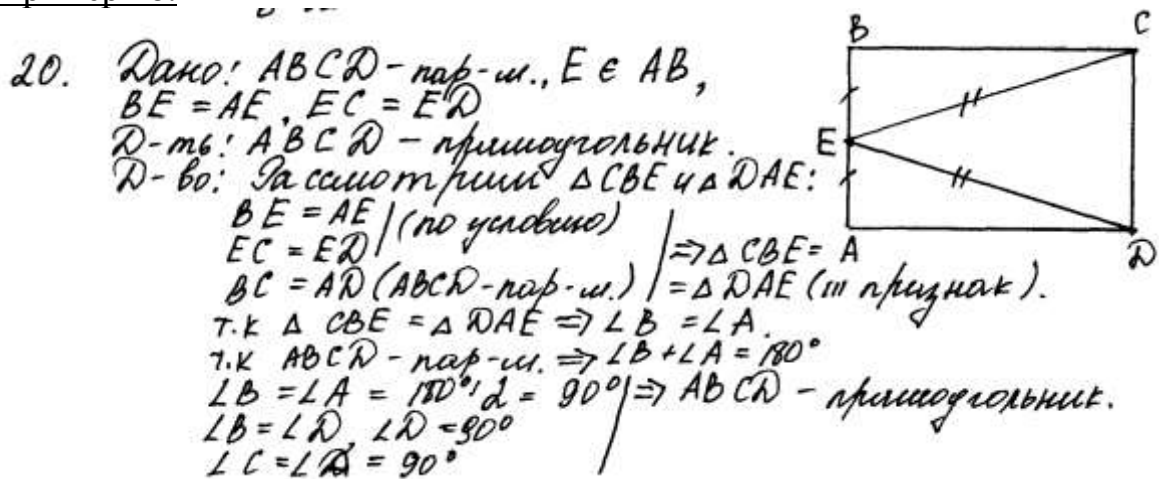 20. Дано: ABCD - пар-м., E ∈ AB,
BE = AE, EC = ED
Д-ть: ABCD - прямоугольник.
Д-во: Рассмотрим △ CBE и △ DAE:
BE = AE | (по условию)
EC = ED | ⇒ △ CBE =
BC = AD (ABCD - пар-м.) | = △ DAE (III признак).
т.к △ CBE = △ DAE ⇒ ∠B = ∠A.
т.к ABCD - пар-м. ⇒ ∠B + ∠A = 180°
∠B = ∠A = 180° : 2 = 90° | ⇒ ABCD - прямоугольник.
∠B = ∠D, ∠D = 90°
∠C = ∠A = 90°
B
C
E
A
D